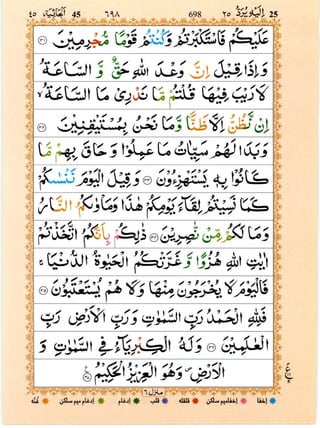 ٤٥ اَلْجَاثِيَة 45 ٦٩٨ 698 ٢٥ اِلَيْهِ يُرَدُّ 25
عَلَيْكُمْ فَاسْتَكْبَرْتُمْ وَكُنْتُمْ قَوْمًا مُّجْرِمِيْنَ ﴿٣١﴾
وَاِذَا قِيْلَ اِنَّ وَعْدَ اللّٰهِ حَقٌّ وَّ السَّاعَةُ
لَا رَيْبَ فِيْهَا قُلْتُمْ مَّا نَدْرِيْ مَا السَّاعَةُ ۙ
اِنْ نَّظُنُّ اِلَّا ظَنًّا وَّمَا نَحْنُ بِمُسْتَيْقِنِيْنَ ﴿٣٢﴾
وَبَدَا لَهُمْ سَيِّاٰتُ مَا عَمِلُوْا وَ حَاقَ بِهِمْ مَّا
كَانُوْا بِهٖ يَسْتَهْزِءُوْنَ ﴿٣٣﴾ وَقِيْلَ الْيَوْمَ نَنْسٰىكُمْ
كَمَا نَسِيْتُمْ لِقَآءَ يَوْمِكُمْ هٰذَا وَمَاْوٰىكُمُ النَّارُ
وَمَا لَكُمْ مِّنْ نّٰصِرِيْنَ ﴿٣٤﴾ ذٰلِكُمْ بِاَنَّكُمُ اتَّخَذْتُمْ
اٰيٰتِ اللّٰهِ هُزُوًا وَّ غَرَّتْكُمُ الْحَيٰوةُ الدُّنْيَا ۚ
فَالْيَوْمَ لَا يُخْرَجُوْنَ مِنْهَا وَلَا هُمْ يُسْتَعْتَبُوْنَ ﴿٣٥﴾
فَلِلّٰهِ الْحَمْدُ رَبِّ السَّمٰوٰتِ وَرَبِّ الْاَرْضِ رَبِّ
الْعٰلَمِيْنَ ﴿٣٦﴾ وَلَهُ الْكِبْرِيَآءُ فِى السَّمٰوٰتِ وَ
الْاَرْضِ ۪ وَهُوَ الْعَزِيْزُ الْحَكِيْمُ ﴿٣٧﴾
منزل ٦
اخفا اخفا میم ساکن قلقلہ قلب ادغام ادغام میم ساکن غنّہ